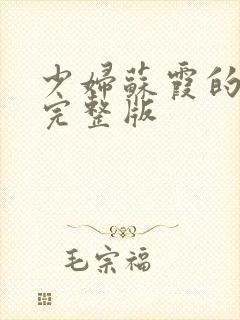 少婦蘇霞的
完整版
毛宗福